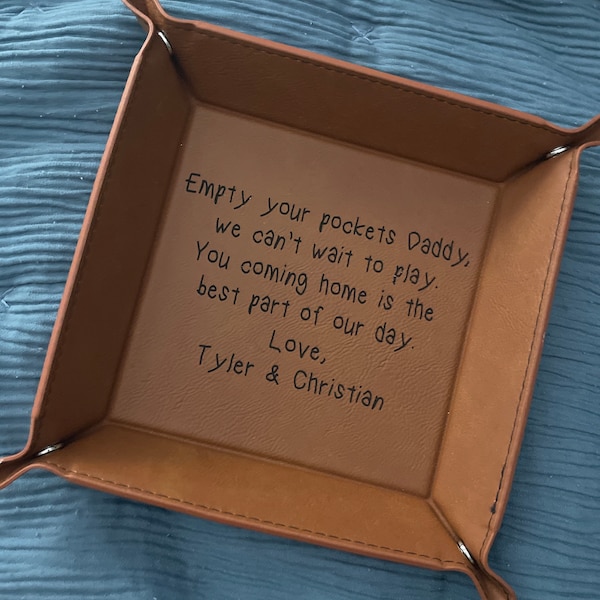 Empty your pockets Daddy,
we can't wait to play.
You coming home is the
best part of our day.
Love,
Tyler & Christian